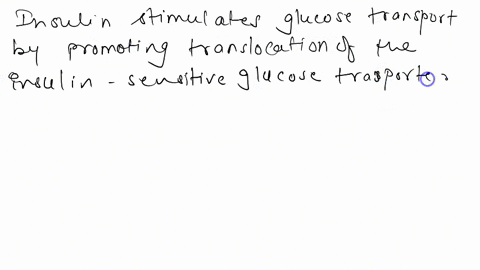 Insulin stimulates glucose transport
by promoting translocation of the
insulin - sensitive glucose trasporte